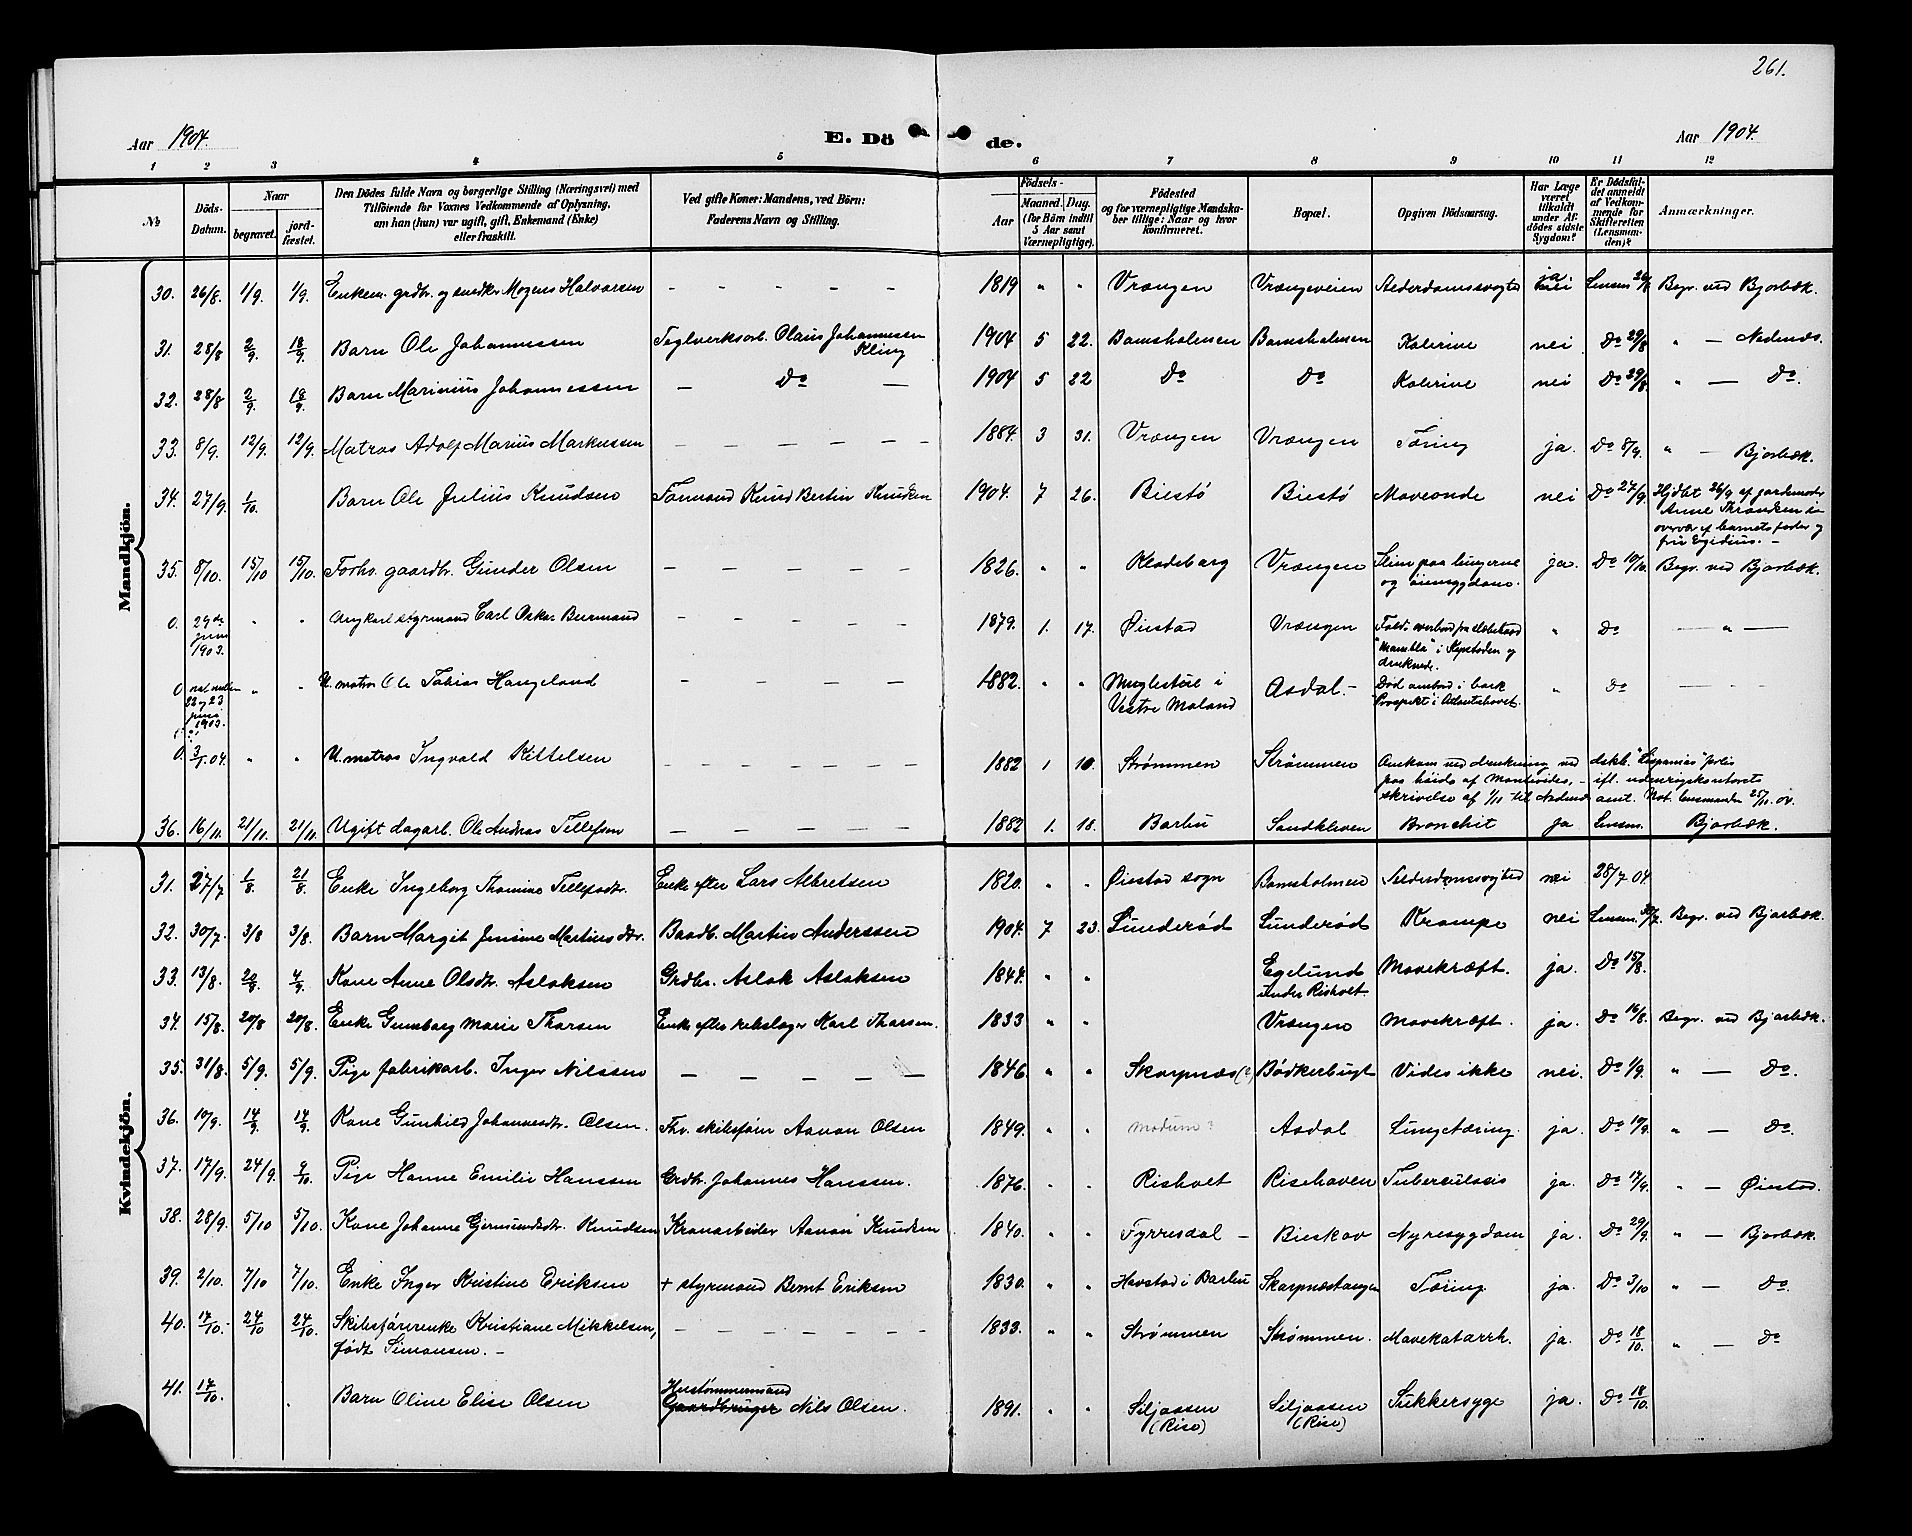 261.
Aar 1904. E. Dö de. Aar 1904.
1 2 3 4 5 6 7 8 9 10 11 12
№ Döds-Datum. Naar begravet. jord-fæstet. Den Dödes fulde Navn og borgerlige Stilling (Næringsvei) med Tilföiende for Voxnes Vedkommende af Oplysning, om han (hun) var ugift, gift, Enkemand (Enke) eller fraskilt. Ved gifte Koner: Mandens, ved Börn: Faderens Navn og Stilling. Födsels- Aar Maaned. Dag. (for Börn indtil 5 Aar samt Værnepligtige). Födested og for værnepligtige Mandskaber tillige: Naar og hvor konfirmeret. Bopæl. Opgiven Dödsaarsag. Har Læge været tilkaldt under Afdödes sidste Sygdom? Er Dödsfaldet anmeldt af Vedkommende for Skifteretten (Lensmanden)? Anmærkninger.
Mandkjön.
30. 26/8. 1/9. 1/9. Enkem. grdbr. og snedkr Mogens Halvorsen – – – – 1819 " " Vrængen Vrængeveien Alderdomssvaghed ja nei Lensm. Begr. ved Bjorbæk.
31. 28/8 2/9. 18/9. Barn Ole Johannessen Teglverksarb. Olaus Johannessen Kling 1904 5 22. Bomsholmen Bomsholmen Kolerine nei Do 29/8 " — Nedenæs.
32. 28/8 2/9. 18/9. Barn Marinius Johannessen — Do — 1904 5 22 Do Do Kolerine nei Do 29/8. " — Do.
33. 8/9. 12/9. 12/9. Matros Adolf Marius Markussen – – – – 1884. 3 31. Vrængen Vrængen Tæring ja. Do 8/9. " — Bjorbæk.
34. 27/9. 1/10. Barn Ole Julius Knudsen Formand Knud Bertin Knudsen 1904. 7 26. Biestö Biestö Maveonde nei Do 27/9. Hjdbt 26/9 af jordemoder Anne Throndsen i overvær af barnets fader og fru Egidius. –
35. 8/10. 15/10 15/10. Forhv. gaardbr. Gunder Olsen – – – – 1826. " " Klodeborg Vrængen Slim paa lungerne og øiensygdom. ja. Do 10/10. Begr. ved Bjorbæk.
0. 29de juni 1903. " " Ungkarl styrmand Carl Oskar Buemand – – – – 1879. 1. 17. Øiestad Vrængen Faldt overbord fra " i og druknede. " Do — " —
0 nat mellem 22 og 23 juni 1903. " " U. matros Ole Tobias Haugeland – – – – 1882. " " i Vestre Moland Asdal. – Død ombord i bark "Prospekt" i Atlanterhavet. " Do — — —
0. 3/1.04. " " U. matros Ingvald Kittelsen – – – – 1882 1 10. Strømmen Strømmen Omkom ved drukning ved dskb. paa høide af Montevideo, – ifl. udenrigskontorets skrivelse af 1/11 til Nedenæs amt. Not. lensmanden 25/11. 04.
36. 16/11. 21/11. 21/11. Ugift dagarb. Ole Andreas Tellefsen – – – – 1882 1. 18. Barbu Sandkleven Bronchit ja Lensm. Bjorbæk.
Kvindekjön.
31. 27/7 1/8. 21/8. Enke Ingeborg Thomine Tellefsdtr. Enke efter Lars Albretsen 1820. " " Øiestad sogn Bomsholmen Alderdomssvaghed nei 28/7 04.
32. 30/7. 3/8 3/8. Barn Margit Jensine Martinsdtr. Baadb. Martin Anderssen 1904. 7 23. Lunderød Lunderød Krampe nei Lensm. 30/7. Begr. ved Bjorbæk.
33. 13/8. 20/8. 4/9. Kone Anne Olsdtr. Aslaksen Grdbr. Aslak Aslaksen 1844. " " Egelund under Risholt. Mavekræft. ja. Do 15/8.
34. 15/8. 20/8 20/8. Enke Gunborg Marie Thorsen Enke efter rebslager Karl Thorsen. 1833 " " Vrængen Mavekræft. ja. Do 16/8. Begr. ved Bjorbæk.
35. 31/8. 5/9. 5/9. Pige fabrikarb. Inger Nilssen – – – – – 1846. " " Skarpnæs(?) Bödkerbugt Vides ikke nei. Do 1/9. " — Do.
36. 10/9. 14/9. 14/9. Kone Gunhild Johannesdtr. Olsen. Fhv. skibsförer Aanon Olsen 1849. " " Modum? Asdal Lungetæring. ja. Do " — Do.
37. 17/9. 24/9. 9/10. Pige Hanne Emilie Hanssen Grdbr. Johannes Hanssen. 1876. " " Risholt Risehaven Tuberculosis ja. Do 17/9. " — Øiestad.
38. 28/9. 5/10 5/10. Kone Johanne Gjermundsdtr. Knudsen Kranarbeider Aanon Knudsen 1840. " " Fyrresdal – Bieskov Nyresygdom ja. Do 29/9. " — Bjorbæk.
39. 2/10. 7/10 7/10. Enke Inger Kristine Eriksen + styrmand Bernt Eriksen 1830. " " Havstad i Barbu Skarpnæstangen Tæring ja. Do 3/10 " — Do
40. 17/10. 24/10 24/10. Skibsförerenke Kristiane Mikkelsen, födt Simonsen. – – – – – 1833. " " Strømmen Strømmen. Mavekatarrh. ja. Do 18/10. " — Do
41. 17/10. . Barn Oline Elise Olsen Hustømmermand Gaardbruger Nils Olsen. 1891. " " Siljaasen (Rise) Siljaasen (Rise) Sukkersyge ja. Do 18/10.